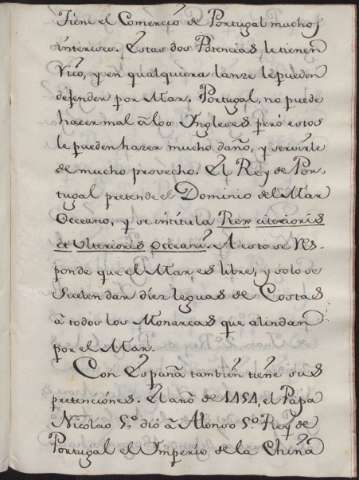 Tiene el Comercio de Portugal muchos
intereses. Estas dos Potencias le tienen
vivo, y en qualquiera lanze le pueden
defender por Mar. Portugal, no puede
hacer mal à los Ingleses pero estos
le pueden hazer mucho daño, y servirle
de mucho provecho. El Rey de Por-
tugal pretende el Dominio del Mar
Occeano, y se intitula Rex citerioris
et Ulterioris Oceani. A esto se res-
ponde que el Mar es libre, y solo se
le dan diez leguas de Costas
à todos los Monarcas que alindan
por el Mar.
Con España tambien tiene sus
pretenciones. El año de 1454, el Papa
Nicolao 5.º diò à Alonso 5.º Rey de
Portugal el Imperio de la China